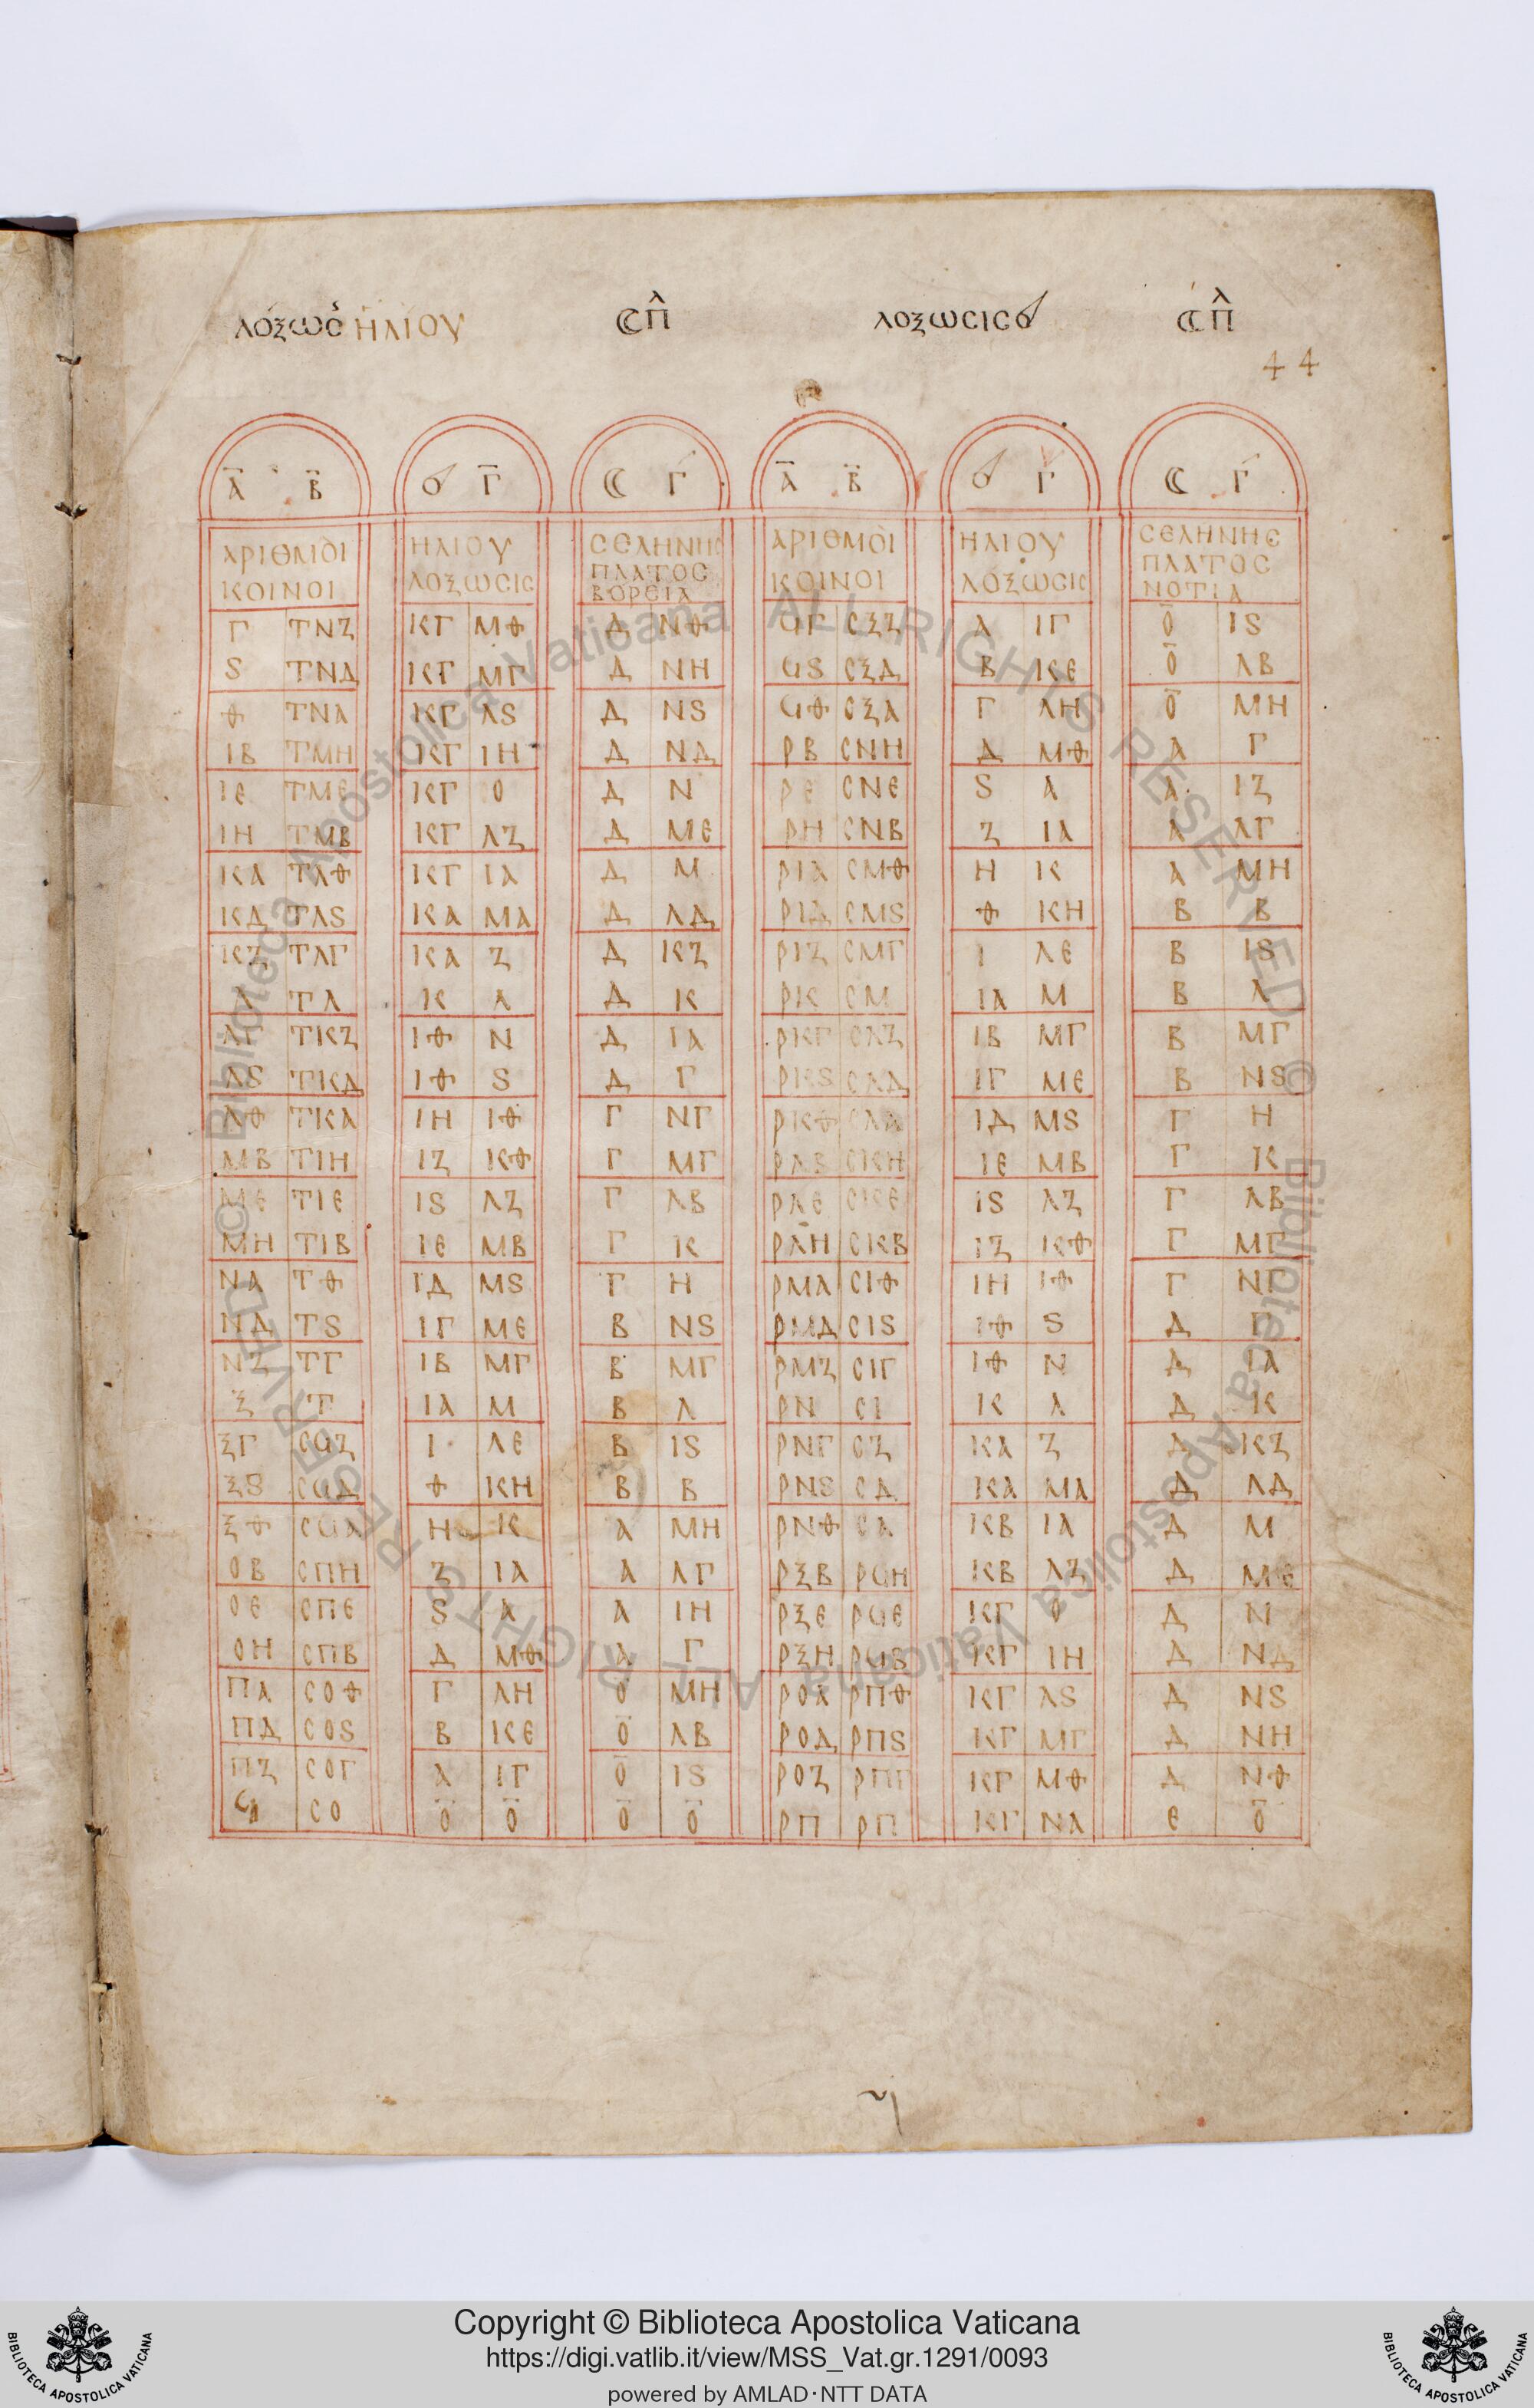 ΛΟΞΩΣ ΗΛΙΟΥ ☾ ΠΛ ΛΟΞΩϹΙϹ ☾ ΠΛ
44
Α Β Γ ☾ Γ Α Β Γ ☾ Γ
ΑΡΙΘΜΟΙ ΗΛΙΟΥ ϹΕΛΗΝΗϹ ΑΡΙΘΜΟΙ ΗΛΙΟΥ ϹΕΛΗΝΗϹ
ΚΟΙΝΟΙ ΛΟΞΩϹΙϹ ΠΛΑΤΟϹ ΚΟΙΝΟΙ ΛΟΞΩϹΙϹ ΠΛΑΤΟϹ
ΒΟΡΕΙΑ ΝΟΤΙΑ
Γ ΤΝΖ ΚΓ ΜΘ Δ ΝΘ ϤΓ ϹΞΖ Α ΙΓ Ο ΙϚ
Ϛ ΤΝΔ ΚΓ ΜΓ Δ ΝΗ ϤϚ ϹΞΔ Β ΚΕ Ο ΛΒ
Θ ΤΝΑ ΚΓ ΛϚ Δ ΝϚ ϤΘ ϹΞΑ Γ ΛΗ Ο ΜΗ
ΙΒ ΤΜΗ ΚΓ ΙΗ Δ ΝΔ ΡΒ ϹΝΗ Δ ΜΘ Α Γ
ΙΕ ΤΜΕ ΚΓ Ο Δ Ν ΡΕ ϹΝΕ Ϛ Α Α ΙΖ
ΙΗ ΤΜΒ ΚΓ ΛΖ Δ ΜΕ ΡΗ ϹΝΒ Ζ ΙΑ Α ΛΓ
ΚΑ ΤΛΘ ΚΓ ΙΑ Δ Μ ΡΙΑ ϹΜΘ Η Κ Α ΜΗ
ΚΔ ΤΛϚ ΚΑ ΜΑ Δ ΛΔ ΡΙΔ ϹΜϚ Θ ΚΗ Β Β
ΚΖ ΤΛΓ ΚΑ Ζ Δ ΚΖ ΡΙΖ ϹΜΓ Ι ΛΕ Β ΙϚ
Λ ΤΛ Κ Λ Δ Κ ΡΚ ϹΜ ΙΑ Μ Β Λ
ΛΓ ΤΚΖ ΙΘ Ν Δ ΙΑ ΡΚΓ ϹΛΖ ΙΒ ΜΓ Β ΜΓ
ΛϚ ΤΚΔ ΙΘ Ϛ Δ Γ ΡΚϚ ϹΛΔ ΙΓ ΜΕ Β ΝϚ
ΛΘ ΤΚΑ ΙΗ ΙΘ Γ ΝΓ ΡΚΘ ϹΛΑ ΙΔ ΜϚ Γ Η
ΜΒ ΤΙΗ ΙΖ ΚΘ Γ ΜΓ ΡΛΒ ϹΚΗ ΙΕ ΜΒ Γ Κ
ΜΕ ΤΙΕ ΙϚ ΛΖ Γ ΛΒ ΡΛΕ ϹΚΕ ΙϚ ΛΖ Γ ΛΒ
ΜΗ ΤΙΒ ΙΕ ΜΒ Γ Κ ΡΛΗ ϹΚΒ ΙΖ ΚΘ Γ ΜΓ
ΝΑ ΤΘ ΙΔ ΜϚ Γ Η ΡΜΑ ϹΙΘ ΙΗ ΙΘ Γ ΝΓ
ΝΔ ΤϚ ΙΓ ΜΕ Β ΝϚ ΡΜΔ ϹΙϚ ΙΘ Ϛ Δ Γ
ΝΖ ΤΓ ΙΒ ΜΓ Β ΜΓ ΡΜΖ ϹΙΓ ΙΘ Ν Δ ΙΑ
Ξ Τ ΙΑ Μ Β Λ ΡΝ ϹΙ Κ Λ Δ Κ
ΞΓ ϹϤΖ Ι ΛΕ Β ΙϚ ΡΝΓ ϹΖ ΚΑ Ζ Δ ΚΖ
ΞϚ ϹϤΔ Θ ΚΗ Β Β ΡΝϚ ϹΔ ΚΑ ΜΑ Δ ΛΔ
ΞΘ ϹϤΑ Η Κ Α ΜΗ ΡΝΘ ϹΑ ΚΒ ΙΑ Δ Μ
ΟΒ ϹΠΗ Ζ ΙΑ Α ΛΓ ΡΞΒ ΡϤΗ ΚΒ ΛΖ Δ ΜΕ
ΟΕ ϹΠΕ Ϛ Α Α ΙΗ ΡΞΕ ΡϤΕ ΚΓ Ο Δ Ν
ΟΗ ϹΠΒ Δ ΜΘ Α Γ ΡΞΗ ΡϤΒ ΚΓ ΙΗ Δ ΝΔ
ΠΑ ϹΟΘ Γ ΛΗ Ο ΜΗ ΡΟΑ ΡΠΘ ΚΓ ΛϚ Δ ΝϚ
ΠΔ ϹΟϚ Β ΚΕ Ο ΛΒ ΡΟΔ ΡΠϚ ΚΓ ΜΓ Δ ΝΗ
ΠΖ ϹΟΓ Α ΙΓ Ο ΙϚ ΡΟΖ ΡΠΓ ΚΓ ΜΘ Δ ΝΘ
Ϥ ϹΟ Ο Ο Ο Ο ΡΠ ΡΠ ΚΓ ΝΑ Ε Ο
© Biblioteca Apostolica Vaticana ALL RIGHTS RESERVED © Biblioteca Apostolica Vaticana ALL RIGHTS RESERVED
Copyright © Biblioteca Apostolica Vaticana
https://digi.vatlib.it/view/MSS_Vat.gr.1291/0093
powered by AMLAD·NTT DATA
BIBLIOTECA APOSTOLICA VATICANA
BIBLIOTECA APOSTOLICA VATICANA